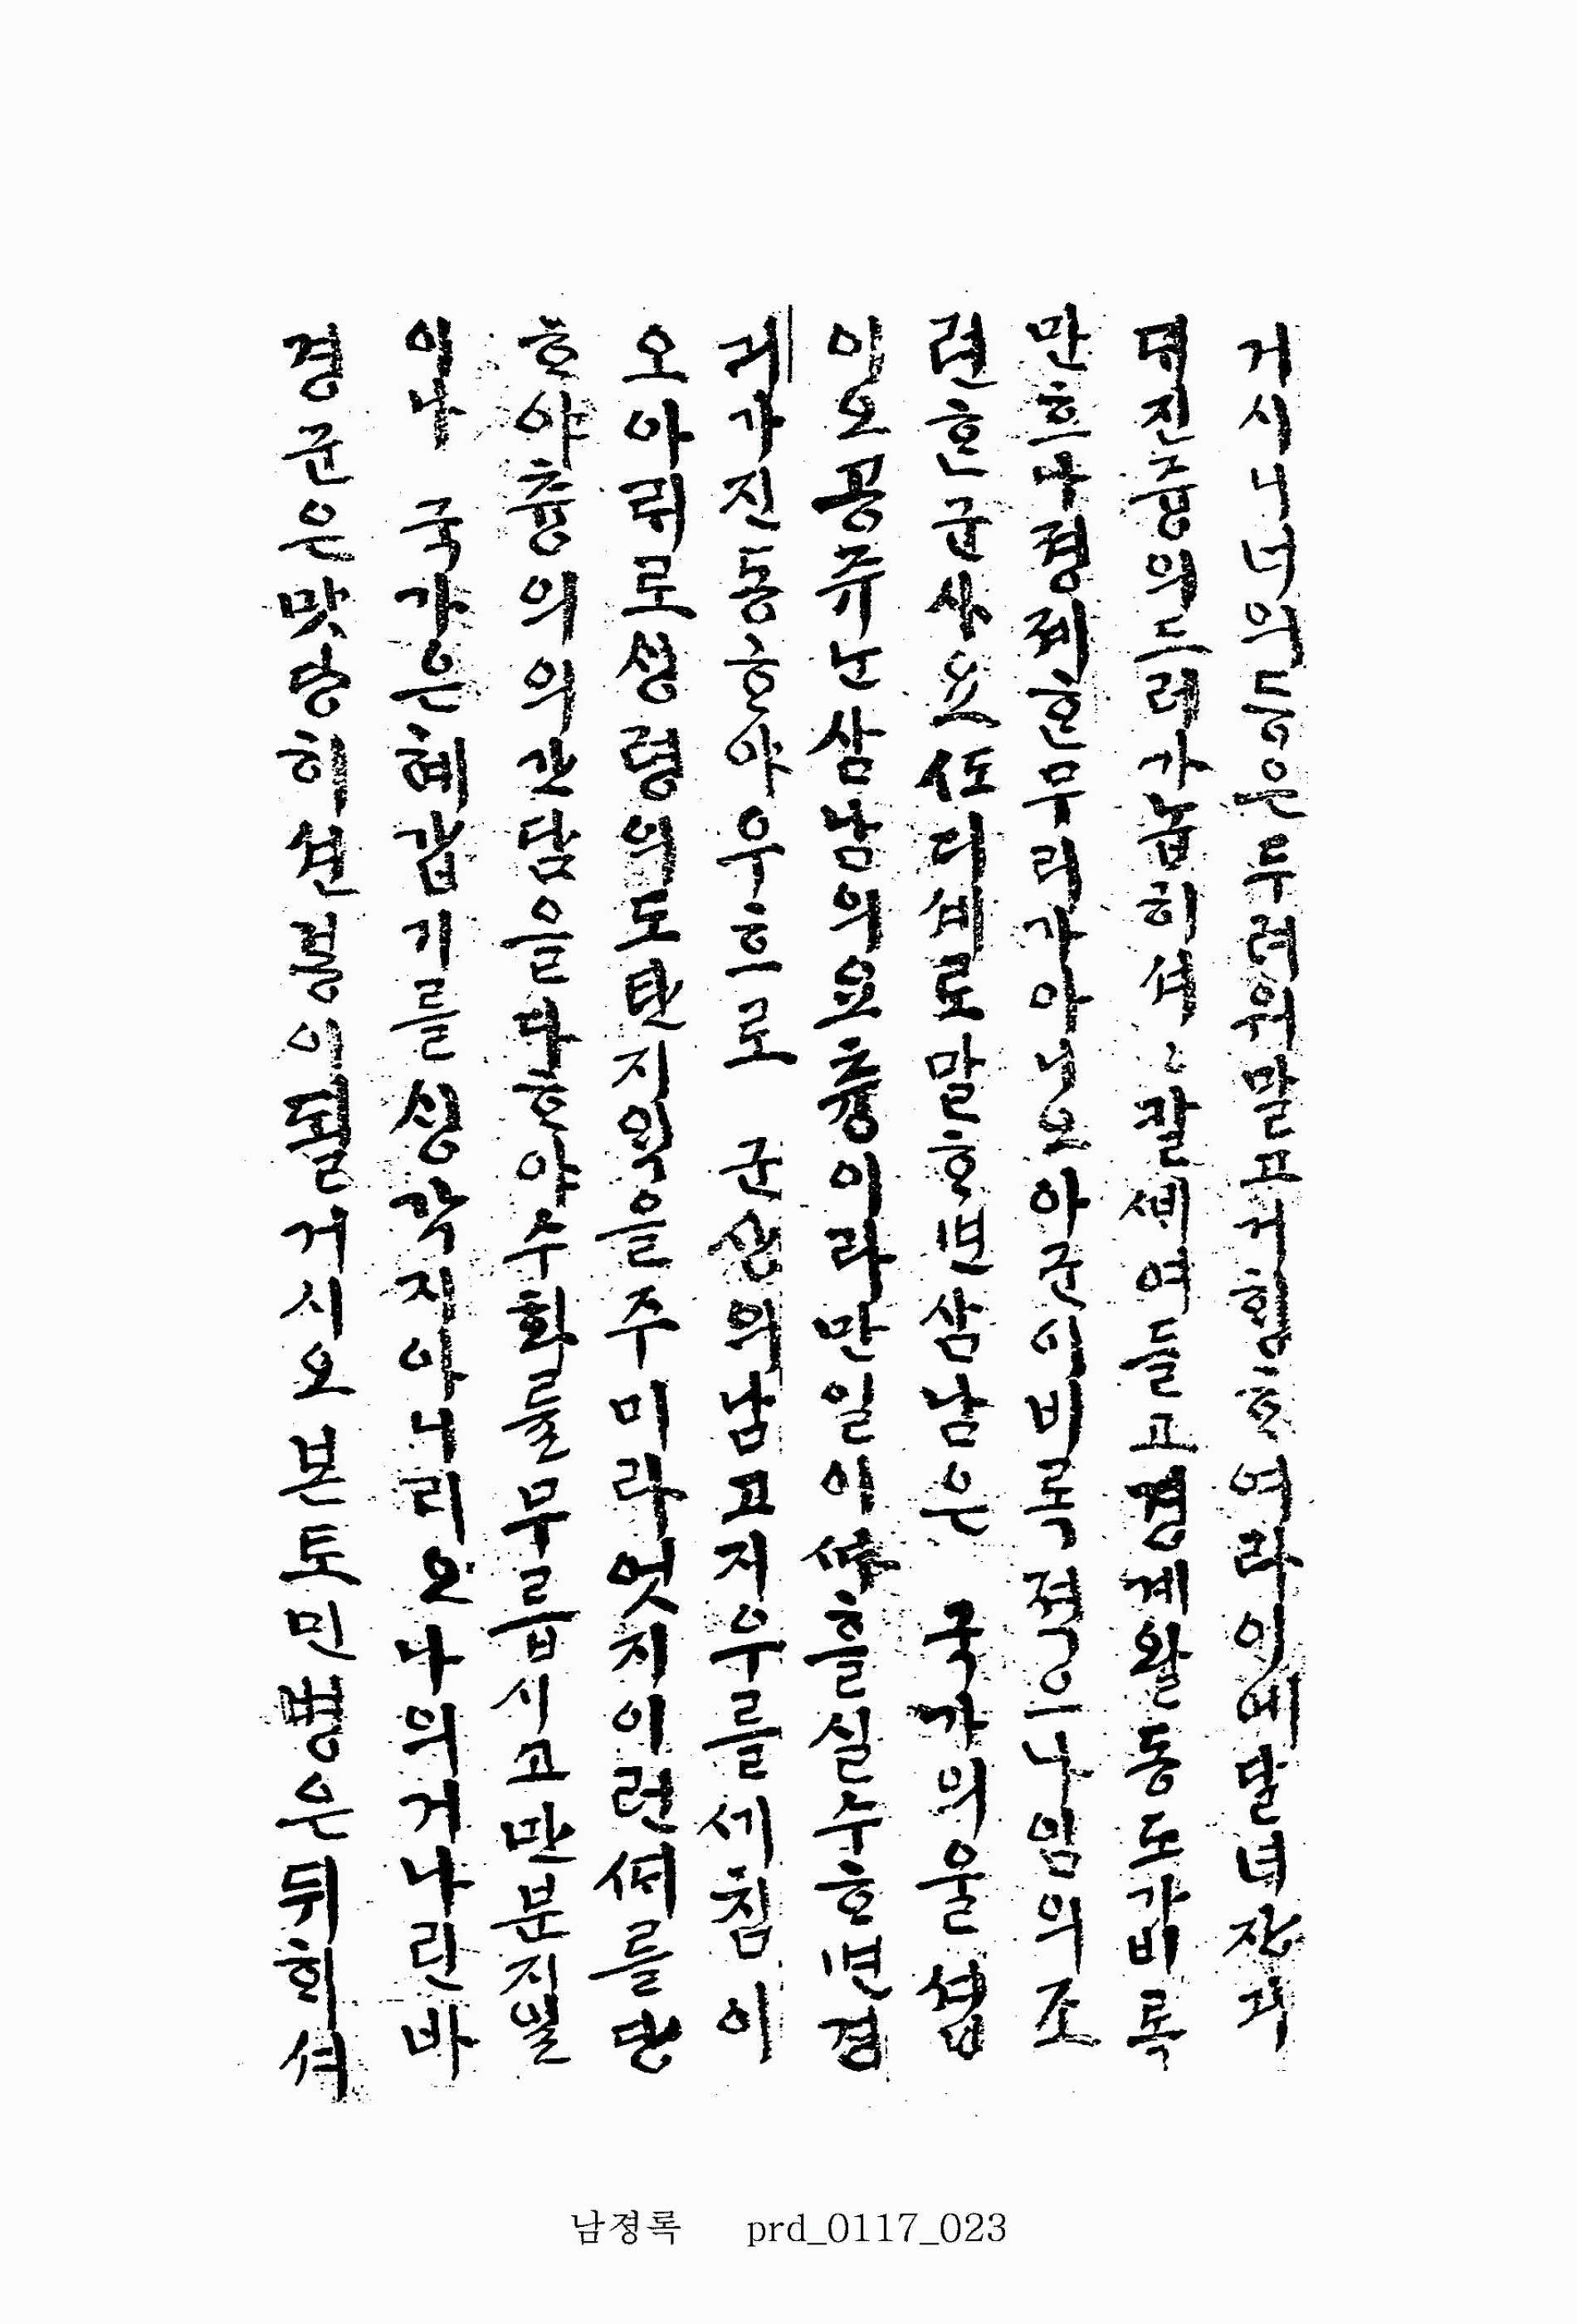 거시니너의등은두려워말고거힝ᄒᆞ여라이예달녀
ᄃᆡ진즁의드러가놉히셔〻칼ᄲᅦ여들고경계왈동도가비록
만흐나졍졔ᄒᆞᆫ무리가아니오아군이비록젹으나임의조
련ᄒᆞᆫ군사요ᄯᅩ디셰로말ᄒᆞ면삼남은 국가의울셥
이오공쥬ᄂᆞᆫ삼남의요츙이라만일이ᄯᅡ흘실수ᄒᆞ면경
긔가진동ᄒᆞ야우흐로 군샹의남고지우를세침이
오아ᄅᆡ로ᄉᆡᆼ령의도탄지익을주미라엇지이런ᄯᆡ를당
ᄒᆞ야츙의의간담을다ᄒᆞ야수화를무릅시고만분지일
이나 국가은혜갑기를ᄉᆡᆼ각지아니리오나의거나린바
경군은맛당히션봉이될거시오본토민병은뒤희셔
남졍록 prd_0117_023